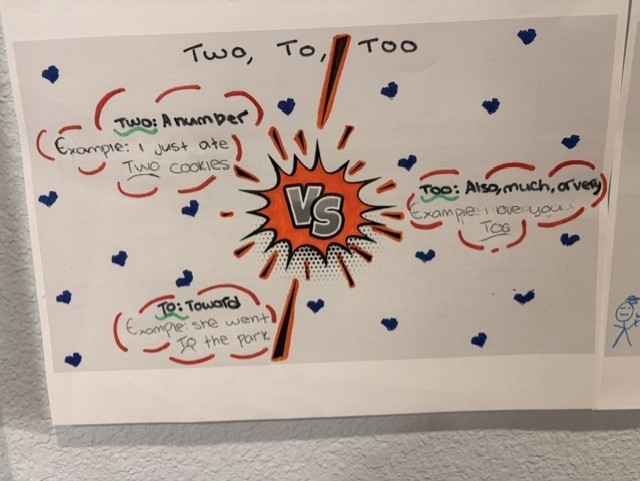 TWO, TO, TOO
TWO: A number
Example: I just ate
TWO COOKIES
VS
TOO: Also, much, or very
Example: i love you
TOO
TO: Toward
Example: she went
TO the park